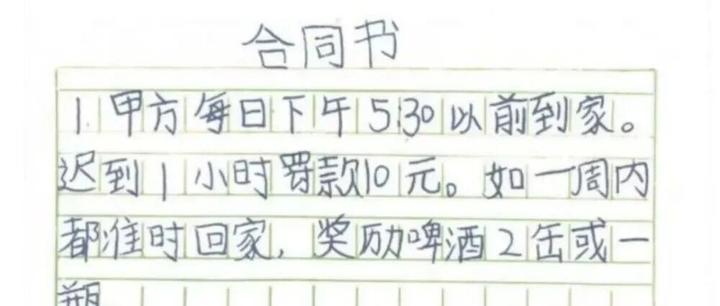 合同书
1.甲方每日下午5:30以前到家。
迟到1小时罚款10元。如一周内
都准时回家,奖励啤酒2缶或一
瓶